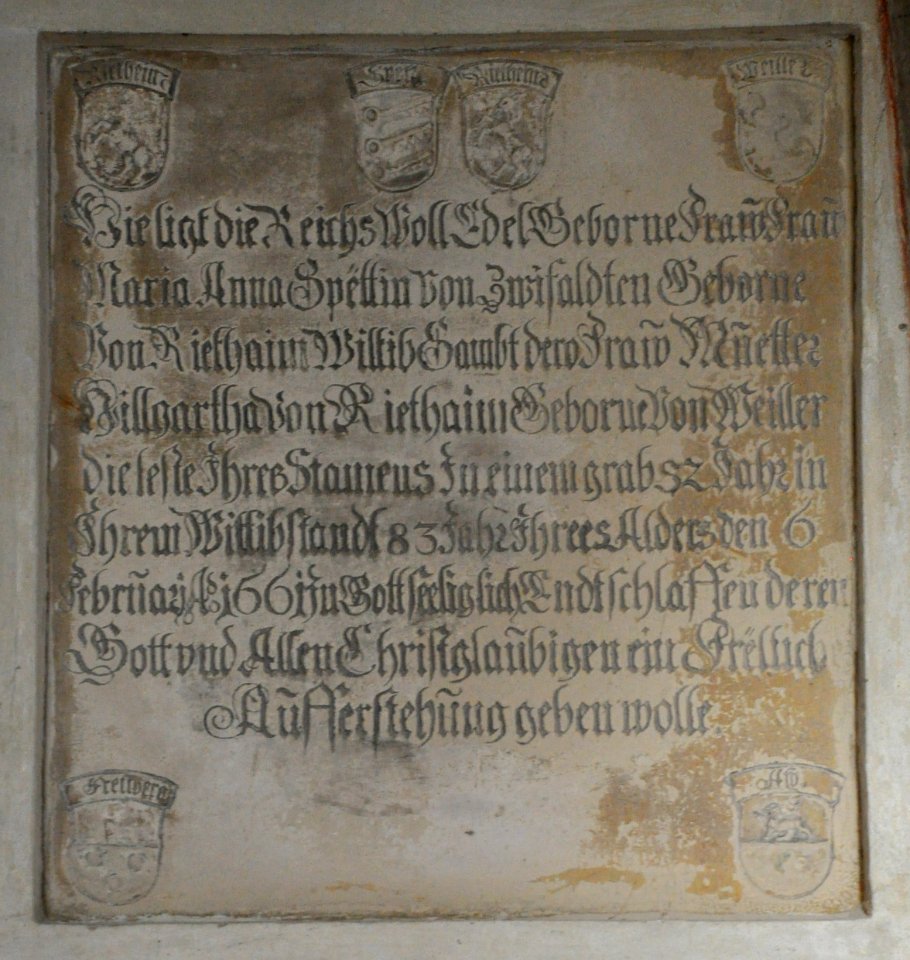 Rietheim Spet Rietheim Weiller
Hie ligt die Reichs Woll Edel Geborne Fraw Fraü
Maria Anna Spëttin von Zwifaldten Geborne
Von Riethaim Wittib Sambt dero Fraw Müetter
Hillgartha von Riethaim Geborne Von Weiller
die leste Jhres Stamens Jn einem grab 52 Jahr in
Jhrem Wittibstandt 83 Jahr Jhrees Alders den 6
Februarj A 1661 Jn Gott seeliglich Endtschlaffen deren
Gott und Allen Christglaübigen ein Frëlich
Aüfferstehüng geben wolle.
Freyberg Aw